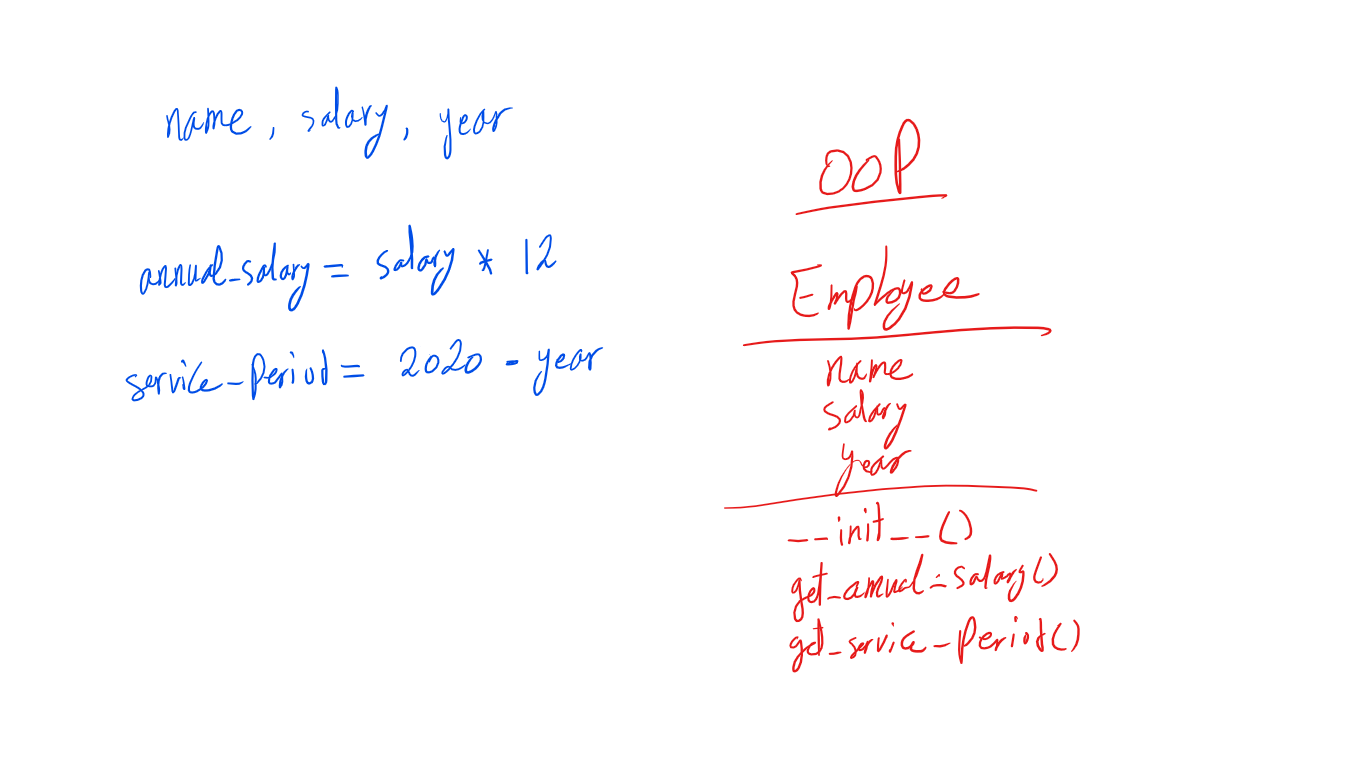 name, salary, year
annual_salary = salary * 12
service_period = 2020 - year
OOP
Employee
name
salary
year
__init__()
get_annual_salary()
get_service_period()